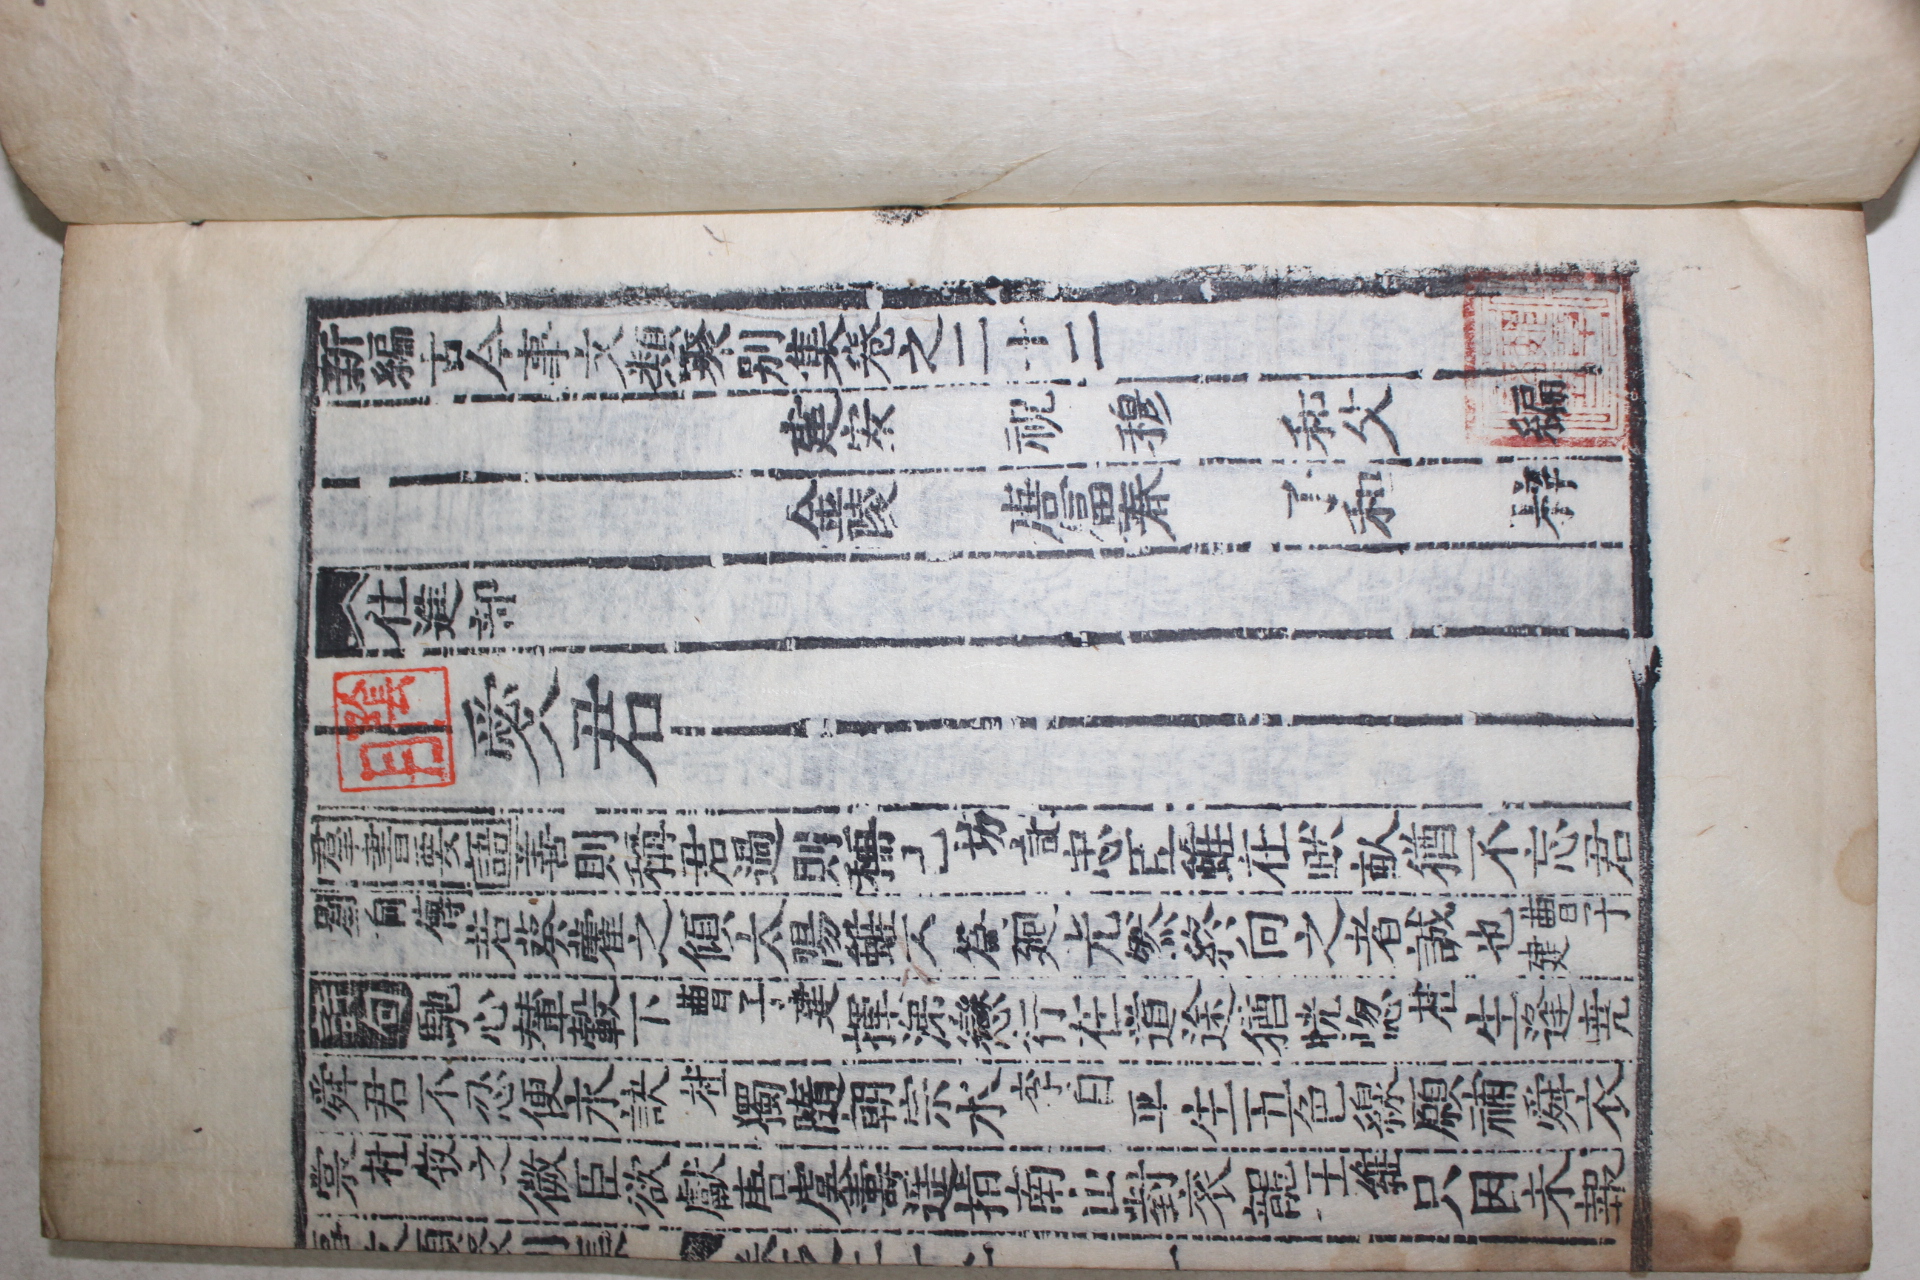 新編古今事文類聚別集卷之二十二
建安 祝 穆 和父 編
金陵 唐富春 子和 梓
仕進部
陰月
愛君
羣書要語善則稱君過則稱己坊記忠臣雖在畎畝猶不忘君
劉向傳若葵藿之傾太陽雖不爲廻光然終向之者誠也曹子建
詩句馳心輦轂下曹子建揮涕戀行在道途猶恍惚杜生逢堯
舜君不忍便永訣杜獨隨朝宗水李白平生五色線願補舜衣
裳杜牧之微臣欲獻唐虞壽遥指南山對衮龍王維只因未報
事文類聚別集 卷之二十二 一